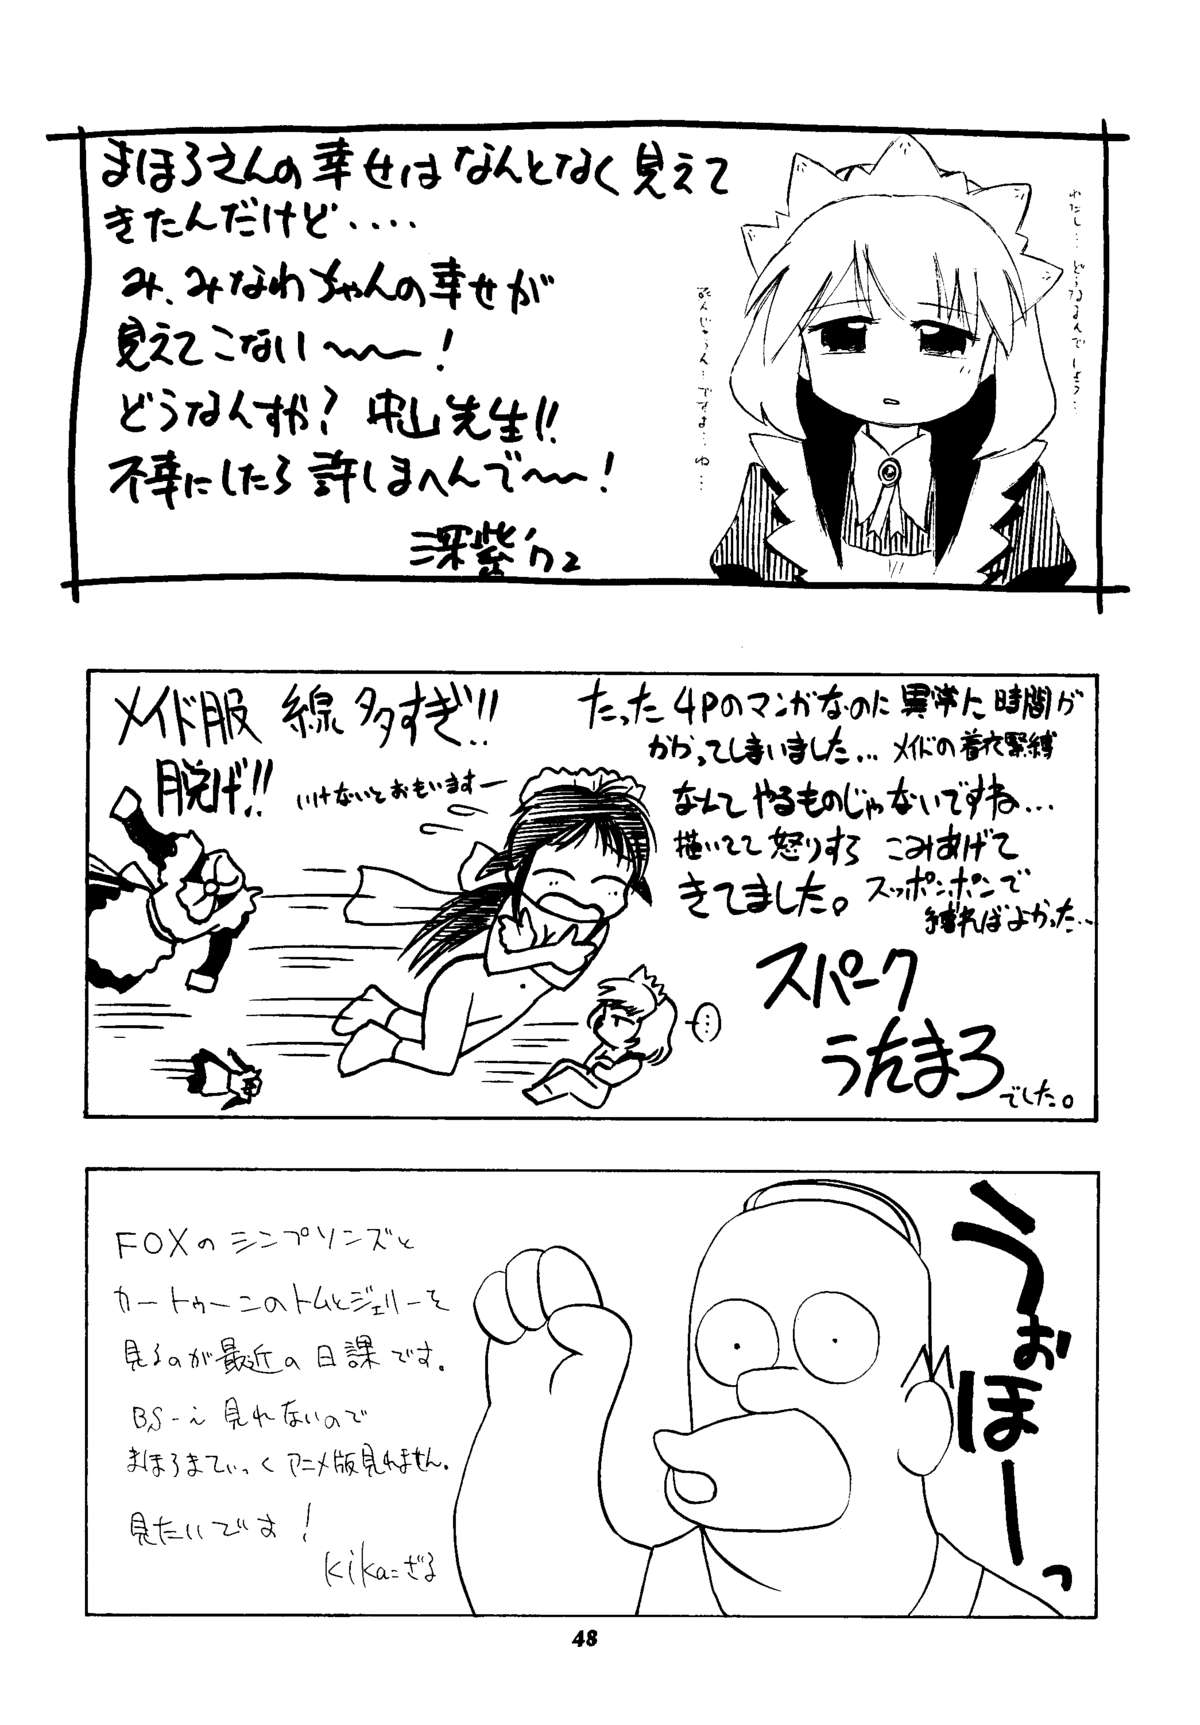 まほろさんの幸せはなんとなく見えて
きたんだけど・・・・
み、みなわちゃんの幸せが
見えてこない〜〜〜!
どうなんすか?中山先生!!
不幸にしたら許しまへんで〜〜!
深紫'02
わたし…どうなるんでしょう…
メイド服 線多すぎ!!
脱げ!!
いけないとおもいますー
たった4Pのマンガなのに異常に時間が
かかってしまいました… メイドの着衣緊縛
なんてやるものじゃないですね…
描いてて怒りすら こみあげて
きてました。スッポンポンで
縛ればよかった…
スパーク
うたまろ
でした。
…
FOXのシンプソンズと
カートゥーンのトムとジェリーを
見るのが最近の日課です。
見れないので
まほろまてぃっくアニメ版見れません。
見たいです!
kika=ざる
うぉほーっ
48